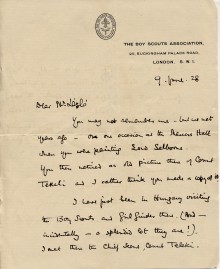 THE BOY SCOUTS ASSOCIATION,
25, BUCKINGHAM PALACE ROAD,
LONDON, S.W.1.
9 June 28
Dear
You may not remember me - but we met
years ago - on one occasion at the
when you were painting Lord Selborne.
You then noticed a picture there of Count
Teleki and I rather think you made a copy of it
I have just been in Hungary visiting
the Boy Scouts and Girl Guides there (And -
incidentally - a splendid lot they are!).
I met there the Chief Scout, Count Teleki.